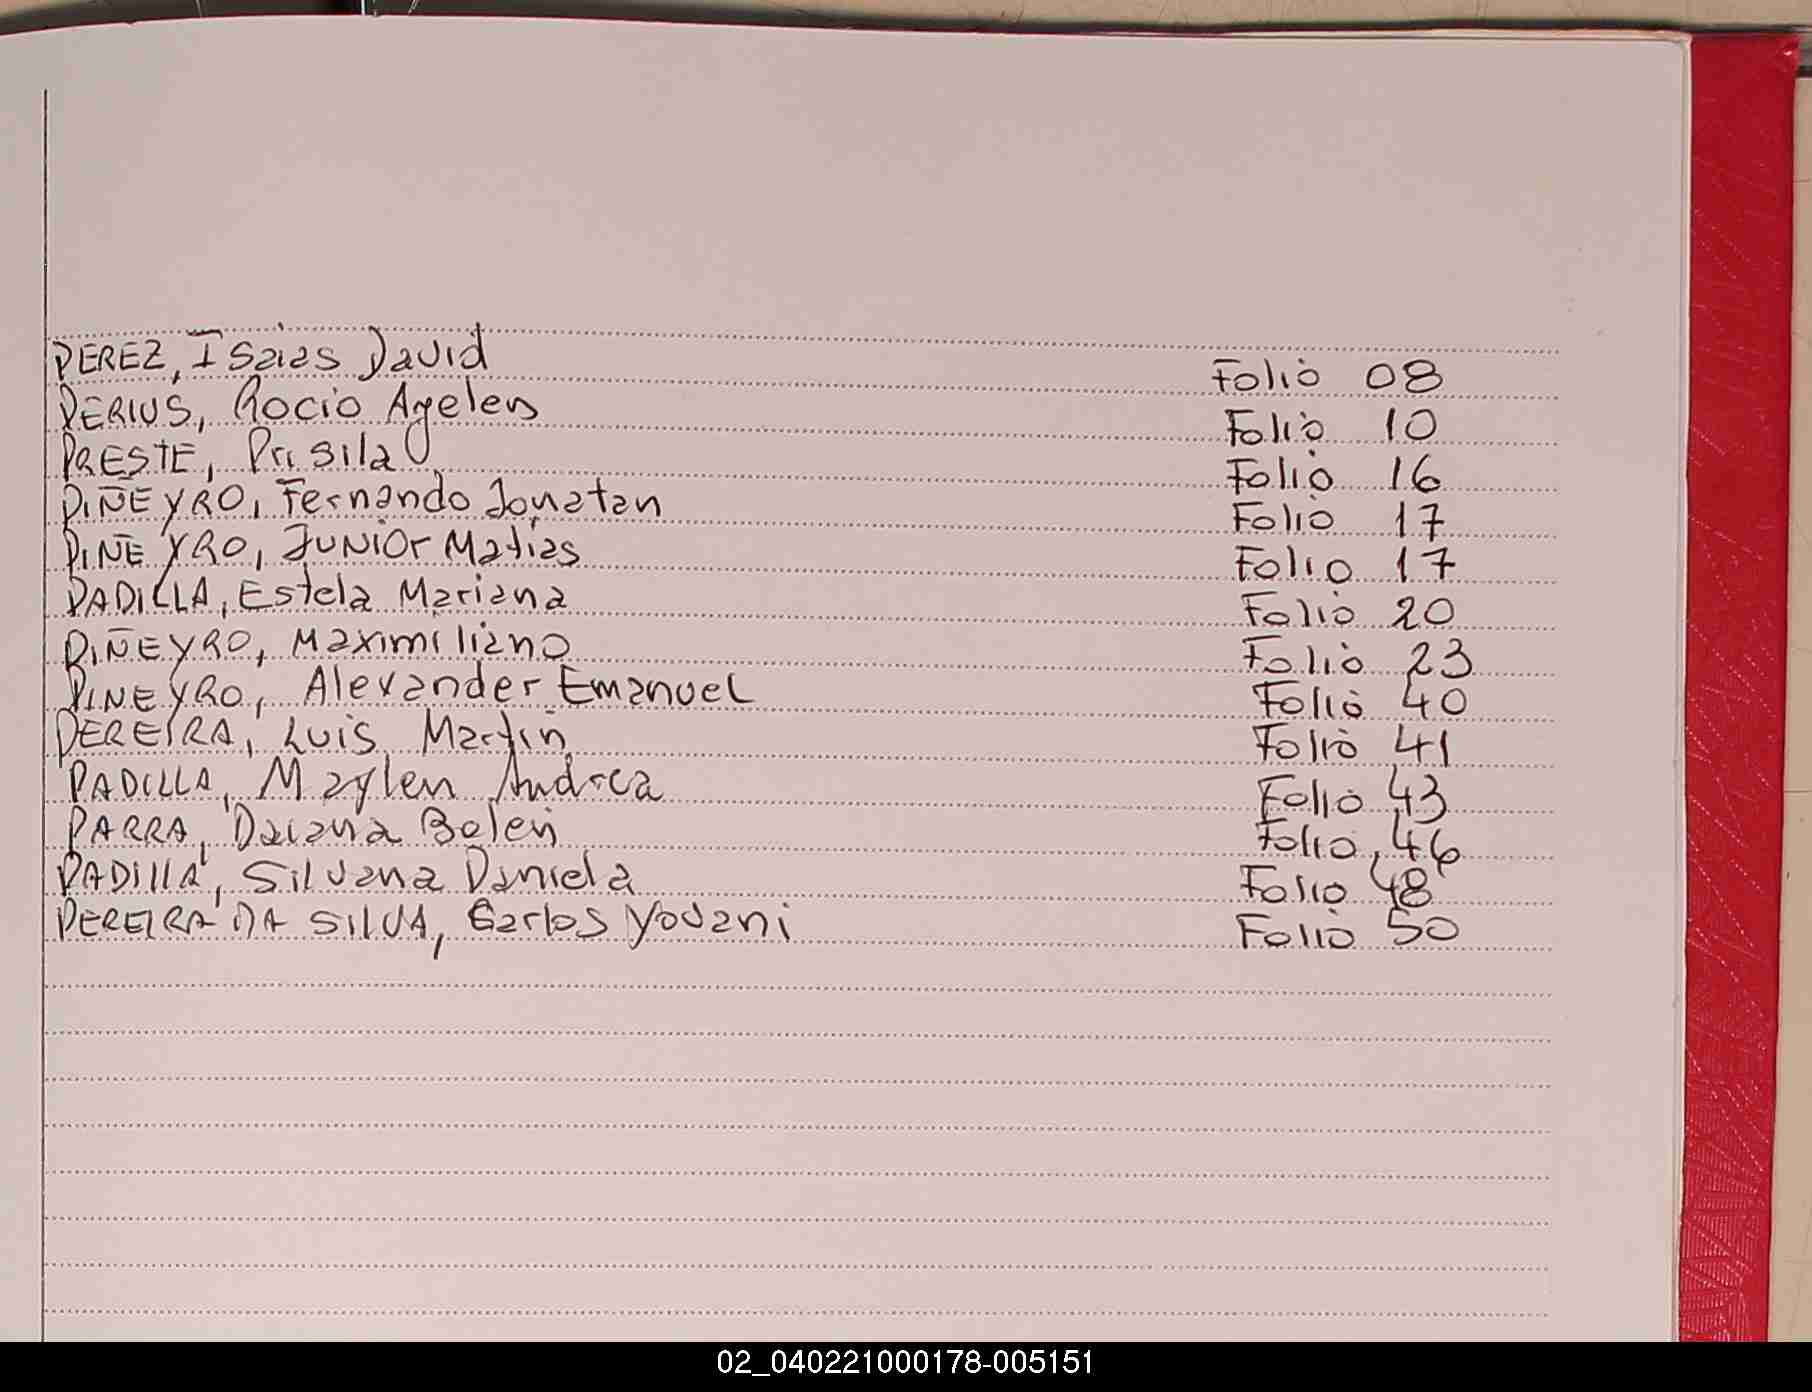 PEREZ, Isaias David Folio 08
PERIUS, Rocio Agelen Folio 10
PRESTE, Prisila Folio 16
PIÑEYRO, Fernando Jonatan Folio 17
PIÑEYRO, JUNIOR Matias Folio 17
PADILLA, Estela Mariana Folio 20
PIÑEYRO, Maximiliano Folio 23
PINEYRO, Alexander Emanuel Folio 40
PEREIRA, Luis Martin Folio 41
PADILLA, Maylen Andrea Folio 43
PARRA, Daiana Belen Folio 46
PADIllA, Silvana Daniela Folio 48
PEREIRA DA SILVA, Carlos Yovani Folio 50
02_040221000178-005151